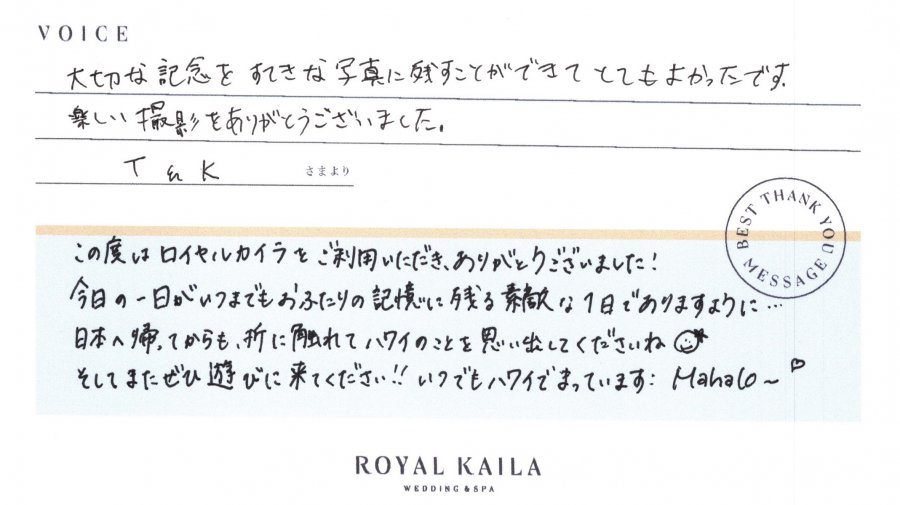 VOICE
大切な記念をすてきな写真に残すことができてとてもよかったです。
楽しい撮影をありがとうございました。
T & K さまより
BEST THANK YOU MESSAGE
この度はロイヤルカイラをご利用いただき、ありがとうございました!
今日の一日がいつまでもおふたりの記憶に残る素敵な1日でありますように…
日本へ帰ってからも、折に触れてハワイのことを思い出してくださいね
そしてまたぜひ遊びに来てください!! いつでもハワイでまっています: Mahalo~♡
ROYAL KAILA
WEDDING & SPA